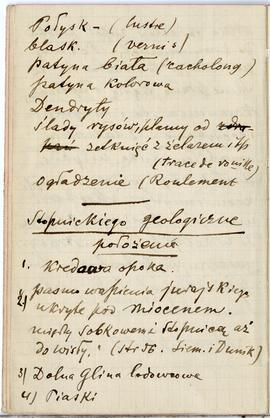 Połysk - (lustre)
blask. (vernis)
patyna biała (cacholong)
patyna kolorowa
Dendryty
ślady rysów, plamy od
zetknięć z żelazem itp
(trace de rouille)
ogładzenie (Roulement
Stopnickiego geologiczne
położenie
1. kredowa opoka.
2) pasmo wapienia jurajskiego
ukryte pod miocenem.
między Sobkowem i Stopnicą aż
do Wisły. (str 56. Siem. i Dunik)
3) Dolna Glina lodowcowa
4) Piaski